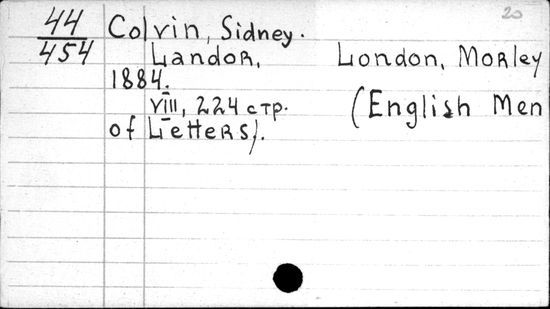 20
44 Colvin, Sidney.
454 Landor, London, Morley
1884.
VIII, 224 стр. (English Men
of Letters).